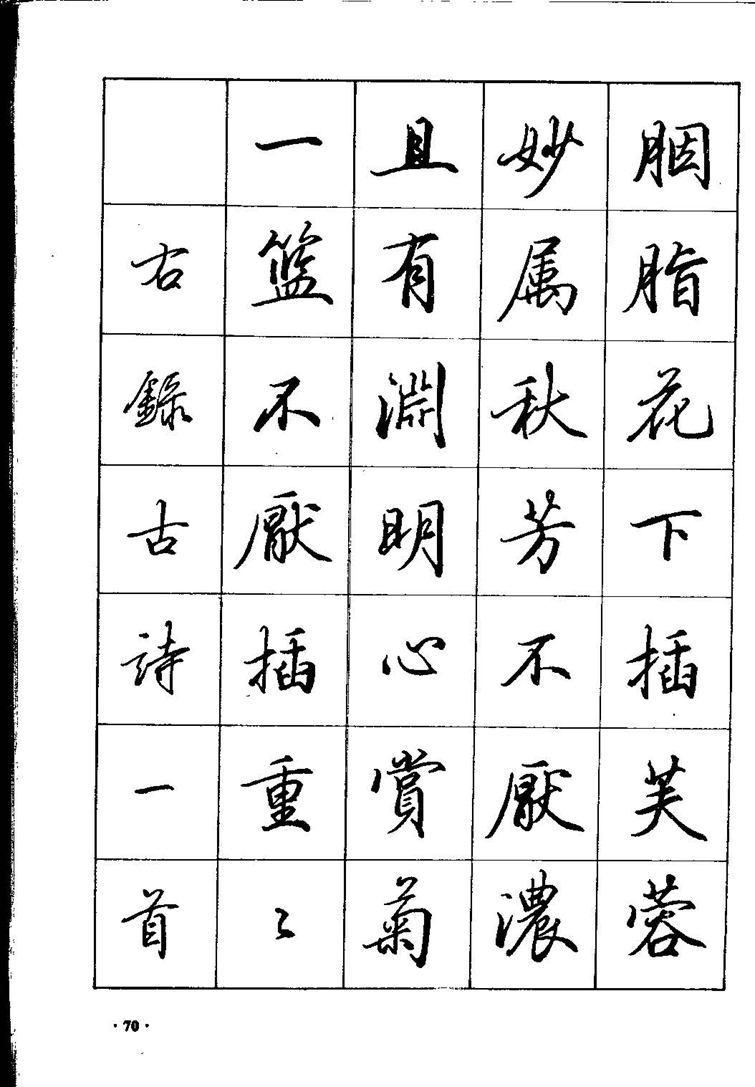 胭脂花下插芙蓉
妙属秋芳不厭濃
且有淵明心賞菊
一籃不厭插重〻
右錄古詩一首
·70·